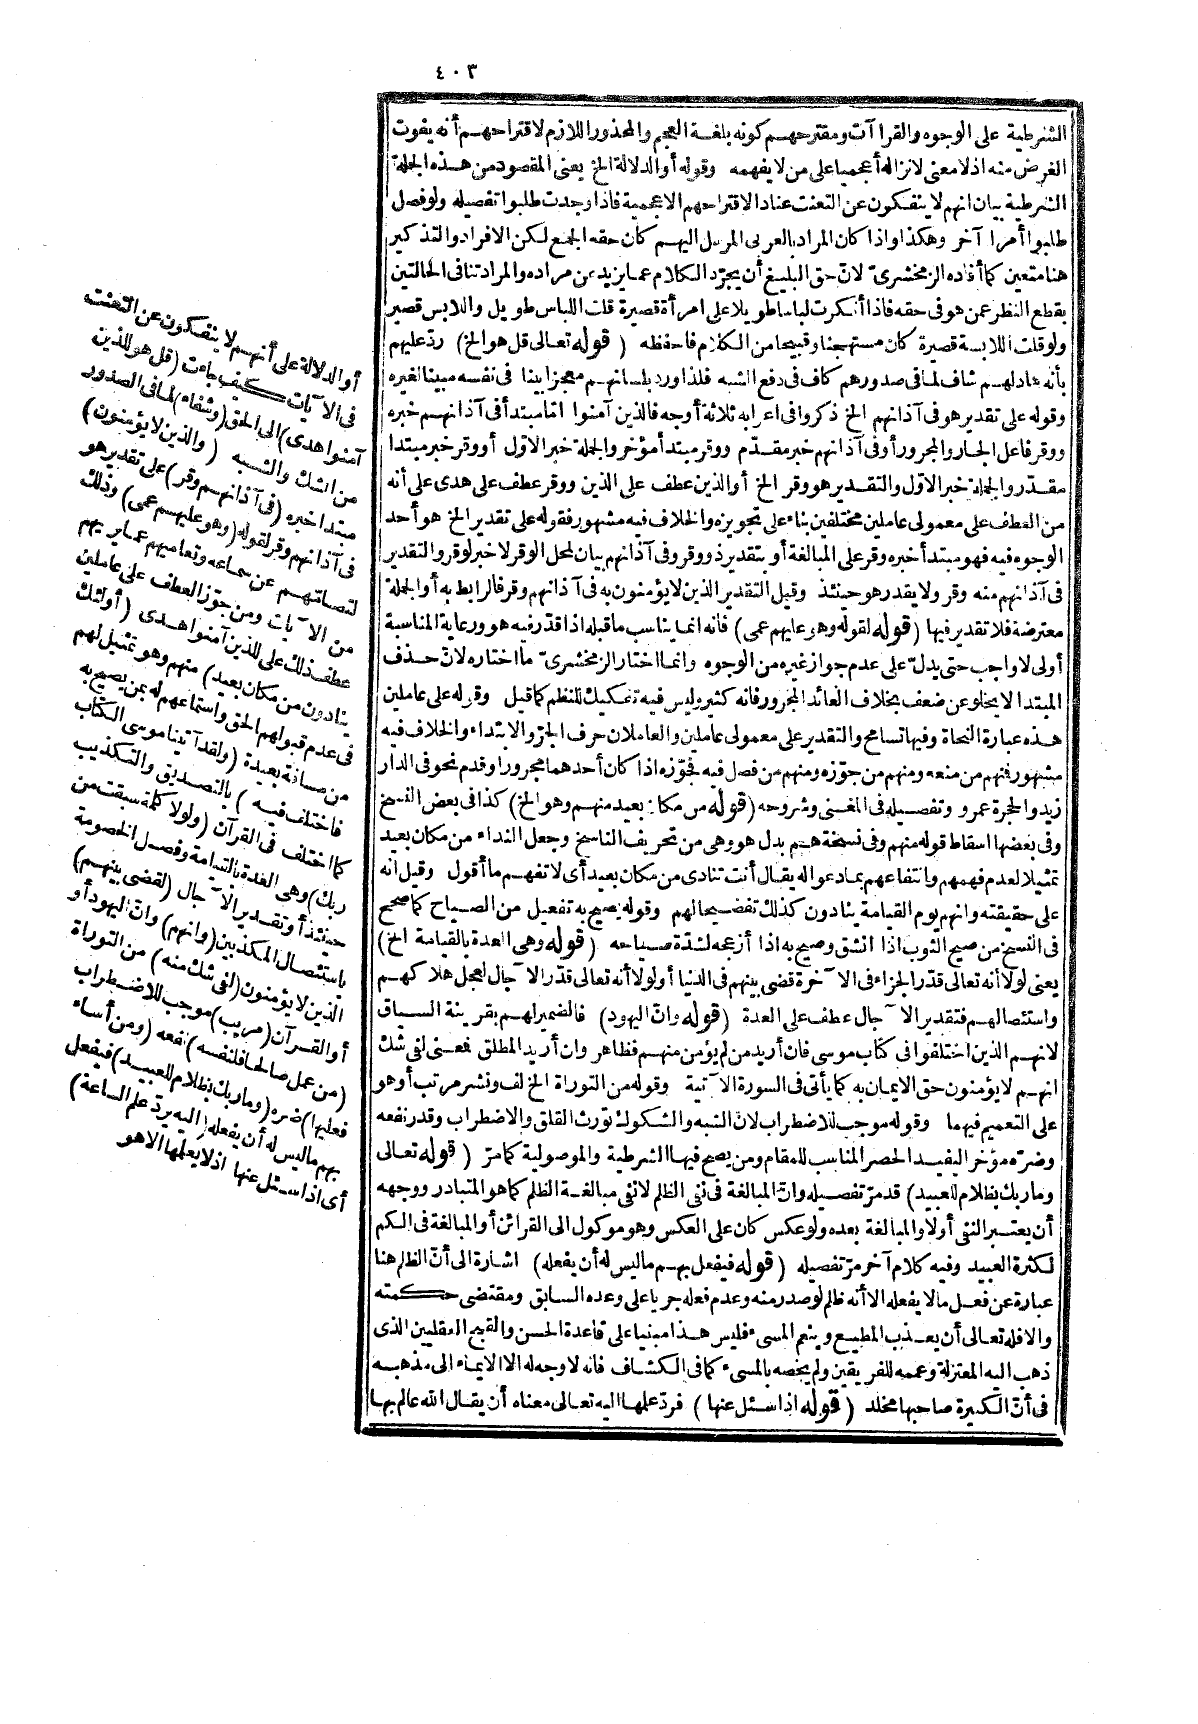 ٤٠٣
الشرطية على الوجوه والقراآت ومقترحهم كونه بلغة العجم والمحذور اللازم لاقتراحهم أنه يفوت
الغرض منه اذ لا معنى لانزاله أعجميا على من لا يفهمه وقوله أو الدلالة الخ يعنى المقصود من هذه الجملة
الشرطية بيان انهم لا ينفكون عن التعنت عنادا لاقتراحهم الاعجمية فاذا وجدت طلبوا تفصيله ولو فصل
طلبوا أمرا آخر وهكذا واذا كان المراد بالعربى المرسل اليهم كان حقه الجمع لكن الافراد والتذكير
هنا متعين كما أفاده الزمخشرىّ لانّ حق البليغ أن يجرّد الكلام عما يزيد عن مراده والمراد تنافى الحالتين
بقطع النظر عمن هو فى حقه فاذا أنكرت لباسا طويلا على امرأة قصيرة قلت اللباس طويل واللابس قصير
ولو قلت اللابسة قصيرة كان مستهجنا وقبيحا من الكلام فاحفظه (قوله تعالى قل هو الخ) ردّ عليهم
بأنه هاد لهم شاف لما فى صدورهم كاف فى دفع الشبه فلذا ورد بلسانهم معجزا بينا فى نفسه مبينا لغيره
وقوله على تقدير هو فى آذانهم الخ ذكروا فى اعرابه ثلاثة أوجه فالذين آمنوا اما مبتدأ فى آذانهم خبره
ووقر فاعل الجار والمجرور أو فى آذانهم خبر مقدّم ووقر مبتدأ مؤخر والجملة خبر الاول أو وقر خبر مبتدا
مقدّر والجملة خبر الاول والتقدير هو وقر الخ أو الذين عطف على الذين ووقر عطف على هدى على أنه
من العطف على معمولى عاملين مختلفين بناء على تجويزه والخلاف فيه مشهور فقوله على تقدير الخ هو أحد
الوجوه فيه فهو مبتدأ خبره وقر على المبالغة أو بتقدير ذو وقر وفى آذانهم بيان لمحل الوقر لا خبر لوقر والتقدير
فى آذانهم منه وقر ولا يقدر هو حينئذ وقيل التقدير الذين لا يؤمنون به فى آذانهم وقر فالرابط به أو الجملة
معترضة فلا تقدير فيها (قوله لقوله وهو عليهم عمى) فانه انما يناسب ما قبله اذا قدر فيه هو ورعاية المناسبة
أولى لا واجب حتى يدلّ على عدم جواز غيره من الوجوه وانما اختار الزمخشرىّ ما اختاره لانّ حذف
المبتدا لا يخلو عن ضعف بخلاف العائد المجرور فانه كثير وليس فيه تفكيك للنظم كما قيل وقوله على عاملين
هذه عبارة النحاة وفيها تسامح والتقدير على معمولى عاملين والعاملان حرف الجرّ والابتداء والخلاف فيه
مشهور فمنهم من منعه ومنهم من جوّزه ومنهم من فصل فيه فجوّزه اذا كان أحدهما مجرورا وقدم نحو فى الدار
زيد والحجرة عمرو وتفصيله فى المغنى وشروحه (قوله من مكان بعيد منهم وهو الخ) كذا فى بعض النسخ
وفى بعضها اسقاط قوله منهم وفى نسخة هم بدل هو وهى من تحريف الناسخ وجعل النداء من مكان بعيد
تمثيلا لعدم فهمهم وانتفاعهم بما دعوا له يقال أنت تنادى من مكان بعيد أى لا تفهم ما أقول وقيل انه
على حقيقته وانهم يوم القيامة ينادون كذلك تفضيحا لهم وقوله يصيح به تفعيل من الصياح كما صحح
فى النسخ من صيح الثوب اذا انشق وصيح به اذا أزعجه لشدّة صياحه (قوله وهى العدة بالقيامة الخ)
يعنى لولا أنه تعالى قدّر الجزاء فى الآخرة قضى بينهم فى الدنيا أو لولا أنه تعالى قدّر الآجال لعجل هلاكهم
واستئصالهم فتقدير الآجال عطف على العدة (قوله وانّ اليهود) فالضمير لهم بقرينة السياق
لانهم الذين اختلفوا فى كتاب موسى فان أريد من لم يؤمن منهم فظاهر وان أريد المطلق فمعنى لفى شك
انهم لا يؤمنون حق الايمان به كما يأتى فى السورة الآتية وقوله من التوراة الخ لف ونشر مرتب أو هو
على التعميم فيهما وقوله موجب للاضطراب لانّ الشبه والشكوك تورث القلق والاضطراب وقدر نفعه
وضره مؤخرا ليفيد الحصر المناسب للمقام ومن يصح فيها الشرطية والموصولية كما مرّ (قوله تعالى
وما ربك بظلام للعبيد) قد مرّ تفصيله وانّ المبالغة فى نفى الظلم لا نفى مبالغة الظلم كما هو المتبادر ووجهه
أن يعتبر النفى أولا والمبالغة بعده ولو عكس كان على العكس وهو موكول الى القرائن أو المبالغة فى الكم
لكثرة العبيد وفيه كلام آخر مرّ تفصيله (قوله فيفعل بهم ما ليس له أن يفعله) اشارة الى أنّ الظلم هنا
عبارة عن فعل ما لا يفعله الا أنه ظلم لو صدر منه وعدم فعله جريا على وعده السابق ومقتضى حكمته
والا فله تعالى أن يعذب المطيع وينعم المسىء فليس هذا مبنيا على قاعدة الحسن والقبح العقليين الذى
ذهب اليه المعتزلة وعممه للفريقين ولم يخصه بالمسىء كما فى الكشاف فانه لا وجه له الا الايماء الى مذهبه
فى أنّ الكبيرة صاحبها مخلد (قوله اذا سئل عنها) فردّ علمها اليه تعالى معناه أن يقال الله عالم بها
أو الدلالة على أنهم لا ينفكون عن التعنت
فى الآيات كيف جاءت (قل هو للذين
آمنوا هدى) الى الحق (وشفاء) لما فى الصدور
من الشك والشبه (والذين لا يؤمنون)
مبتدا خبره (فى آذانهم وقر) على تقدير هو
فى آذانهم وقر لقوله (وهو عليهم عمى) وذلك
لتصامّهم عن سماعه وتعاميهم عما يريهم
من الآيات ومن جوّز العطف على عاملين
عطف ذلك على للذين آمنوا هدى (أولئك
ينادون من مكان بعيد) منهم وهو تمثيل لهم
فى عدم قبولهم الحق واستماعهم له بمن يصيح به
من مسافة بعيدة (ولقد آتينا موسى الكتاب
فاختلف فيه) بالتصديق والتكذيب
كما اختلف فى القرآن (ولولا كلمة سبقت من
ربك) وهى العدة بالقيامة وفصل الخصومة
حينئذ أو تقدير الآجال (لقضى بينهم)
باستئصال المكذبين (وانهم) وانّ اليهود أو
الذين لا يؤمنون (لفى شك منه) من التوراة
أو القرآن (مريب) موجب للاضطراب
(من عمل صالحا فلنفسه) نفعه (ومن أساء
فعليها) ضره (وما ربك بظلام للعبيد) فيفعل
بهم ما ليس له أن يفعله (اليه يردّ علم الساعة)
أى اذا سئل عنها اذ لا يعلمها الا هو